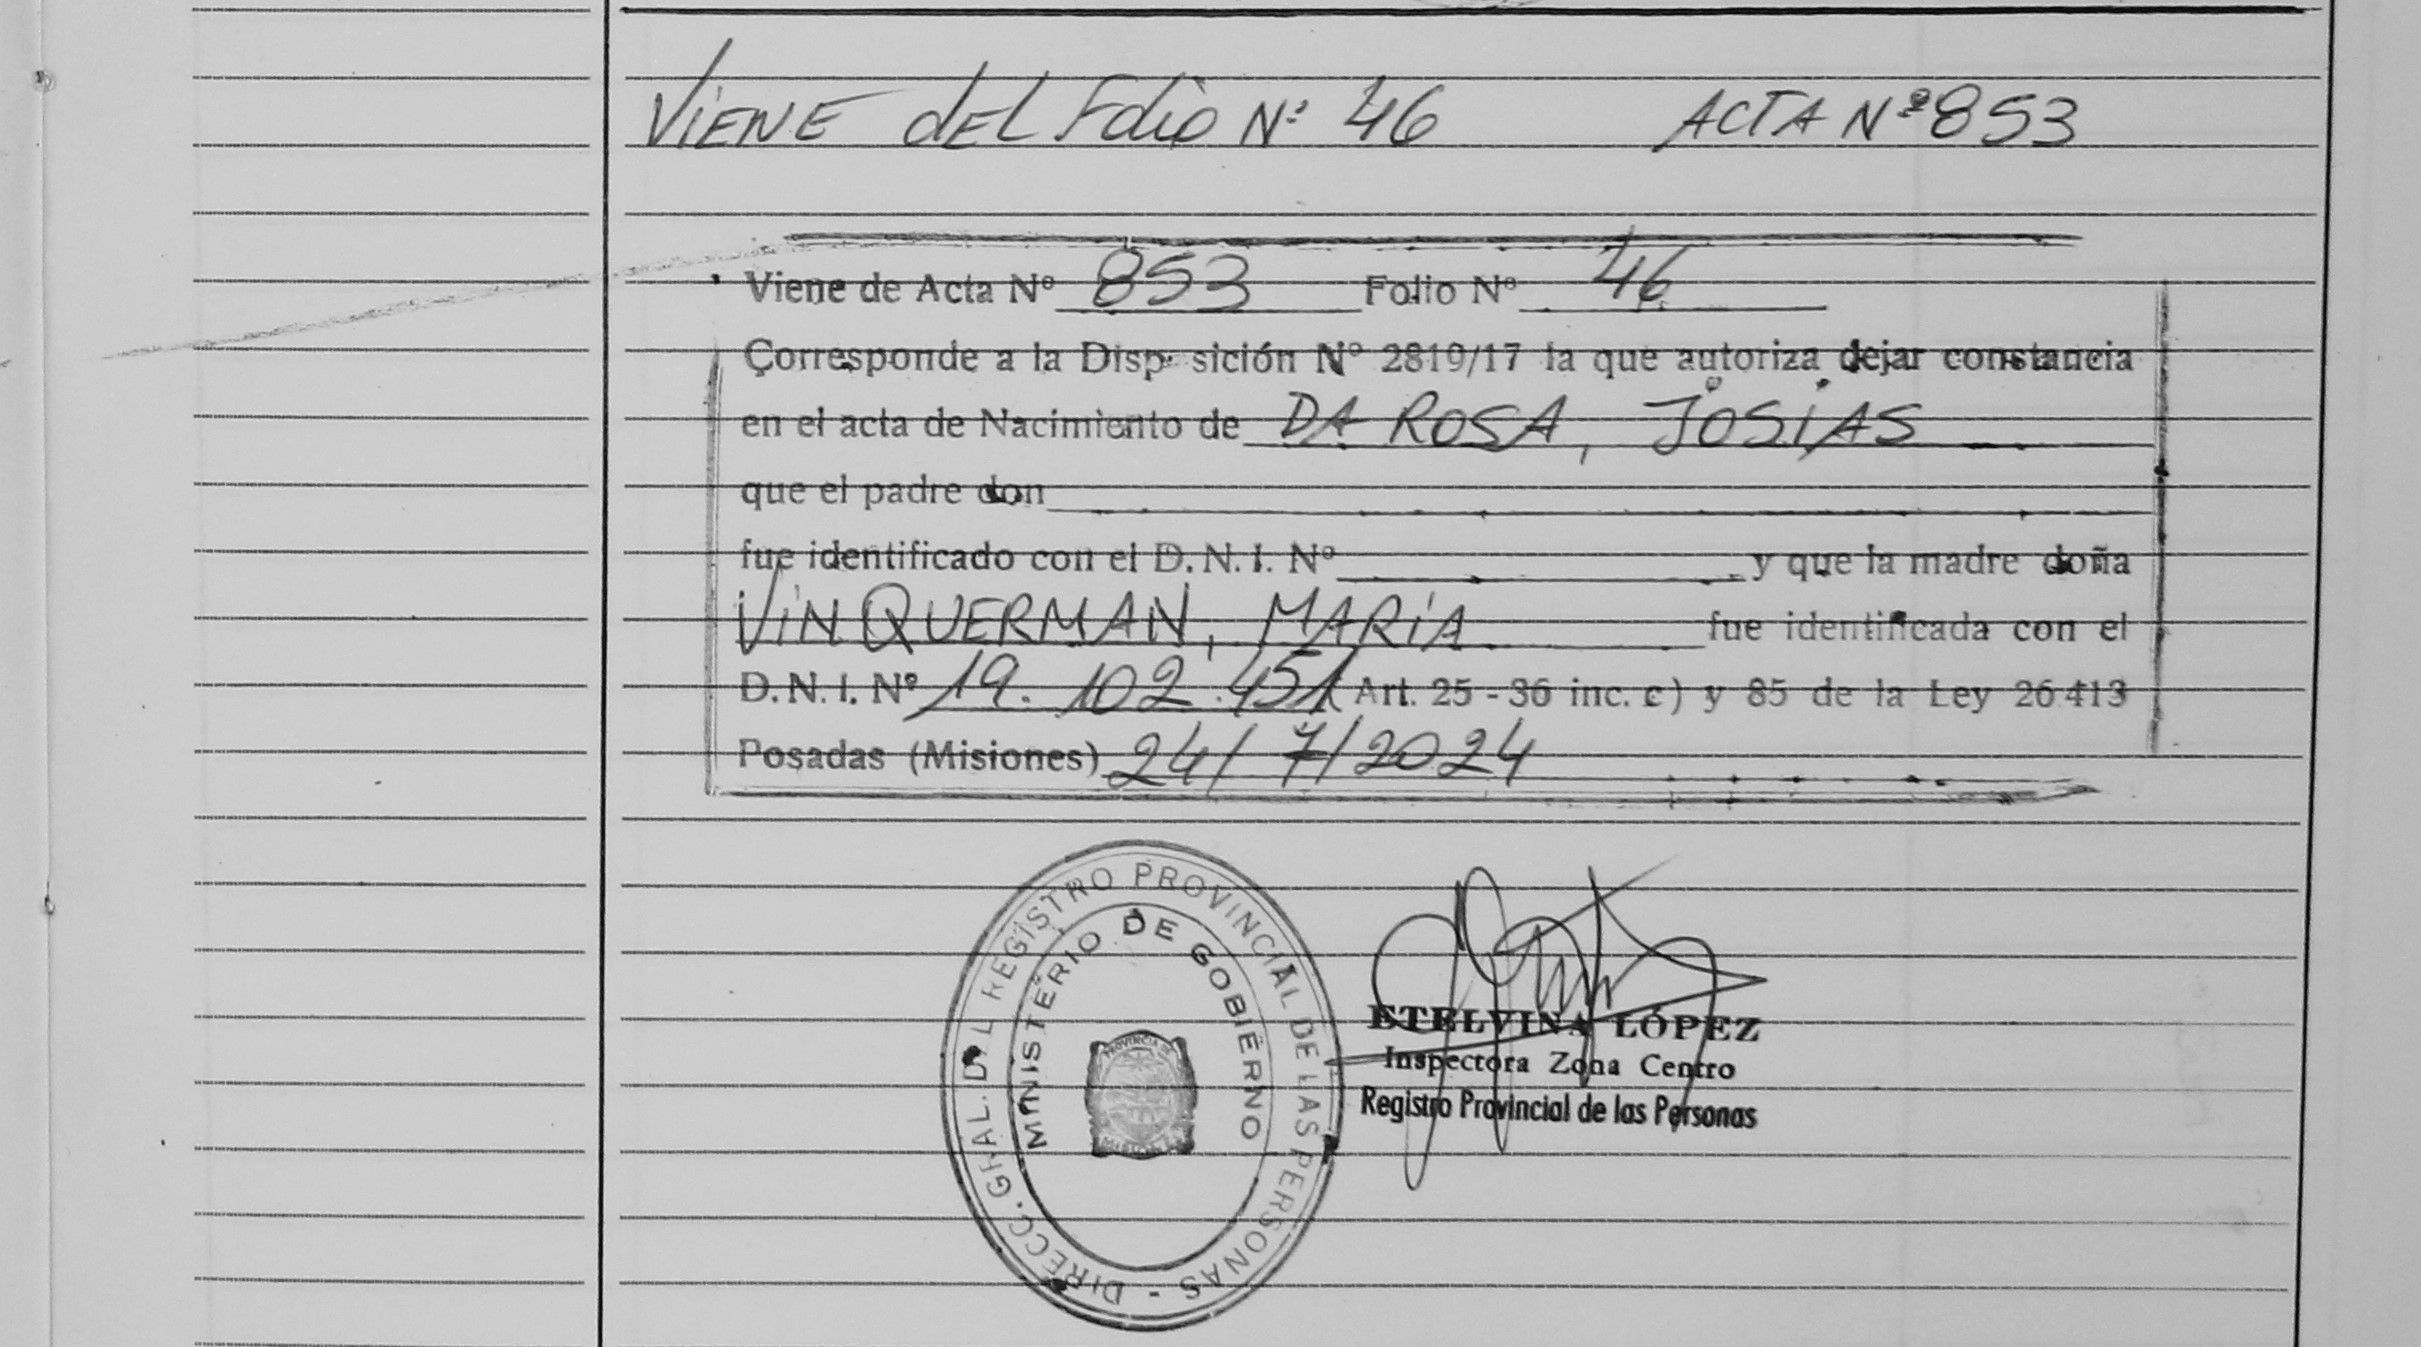 ViENE dEL Folio Nº 46 ACTA Nº 853
Viene de Acta Nº 853 Folio Nº 46
Corresponde a la Disp sición Nº 2819/17 la que autoriza dejar constancia
en el acta de Nacimiento de DA ROSA, JOSíAS
que el padre don
fue identificado con el D.N.I. Nº y que la madre doña
ViNQUERMAN, MARíA fue identificada con el
D.N.I. Nº 19.102.451 (Art. 25 - 36 inc. c) y 85 de la Ley 26.413
Posadas (Misiones) 24/7/2024
DIRECC. GRAL. DEL REGISTRO PROVINCIAL DE LAS PERSONAS -
MINISTERIO DE GOBIERNO
PROVINCIA DE
MISIONES
ETELVINA LÓPEZ
Inspectora Zona Centro
Registro Provincial de las Personas